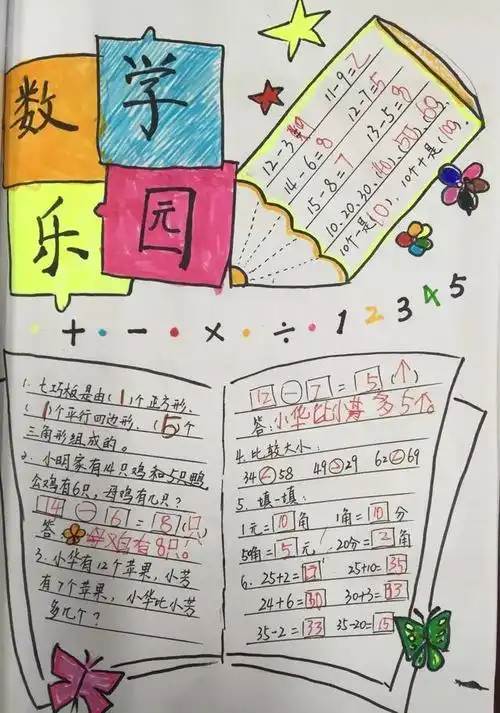 数学
乐园
11-9=2
12-7=5
12-3=9
13-5=8
14-6=8
15-8=7
10、20、30、40、50、60。
10个一是(10)、10个十是(100)。
+ - × ÷ 1 2 3 4 5
1、七巧板是由(1)个正方形、
(1)个平行四边形、(5)个
三角形组成的。
2、小明家有14只鸡和5只鸭
公鸡有6只,母鸡有几只?
14-6=8(只)
答:母鸡有8只。
3、小华有12个苹果,小芳
有7个苹果,小华比小芳
多几个?
12-7=5(个)
答:小华比小芳多5个。
4、比较大小:
34<58 49>29 62<69
5、填一填:
1元=10角 1角=10分
5角=5元 20分=2角
6、25+2= 25+10=35
24+6=30 30+3=33
35-2=33 35-20=15